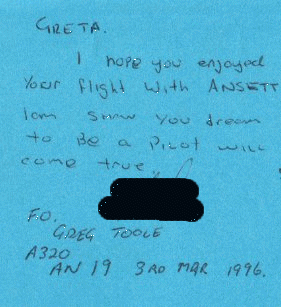 GRETA.
I hope you enjoyed
Your flight with ANSETT
I am sure you dream
to Be a Pilot will
come true.
F.O.
GREG TOOLE
A320
AN 19 3RD MAR 1996.